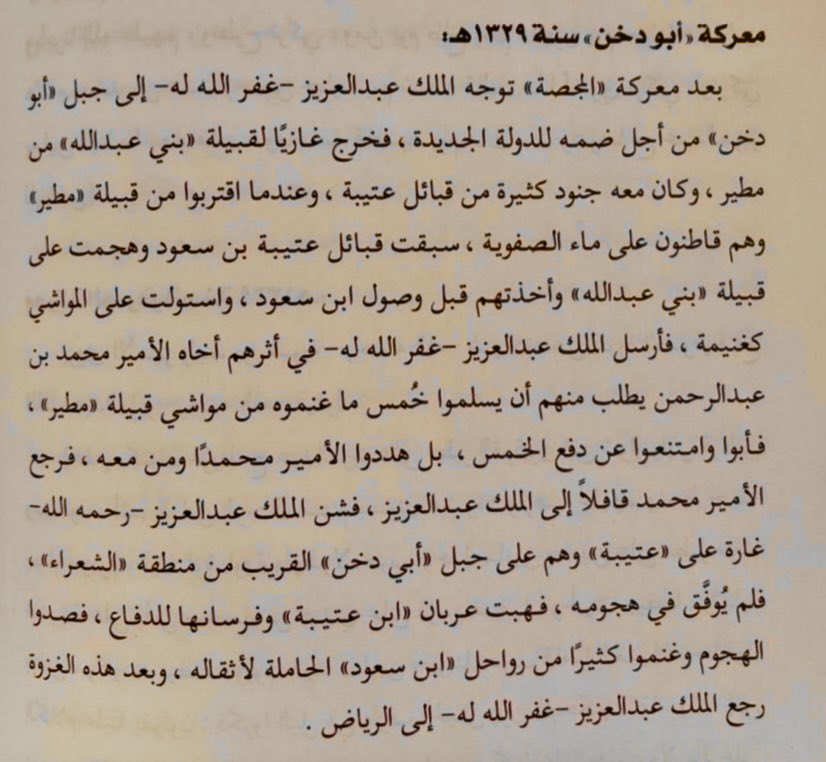 معركة «أبو دخن» سنة ١٣٢٩هـ:
بعد معركة «المجصة» توجه الملك عبدالعزيز -غفر الله له- إلى جبل «أبو
دخن» من أجل ضمه للدولة الجديدة ، فخرج غازيًا لقبيلة «بني عبدالله» من
مطير ، وكان معه جنود كثيرة من قبائل عتيبة ، وعندما اقتربوا من قبيلة «مطير»
وهم قاطنون على ماء الصفوية ، سبقت قبائل عتيبة بن سعود وهجمت على
قبيلة «بني عبدالله» وأخذتهم قبل وصول ابن سعود ، واستولت على المواشي
كغنيمة ، فأرسل الملك عبدالعزيز -غفر الله له- في أثرهم أخاه الأمير محمد بن
عبدالرحمن يطلب منهم أن يسلموا خُمس ما غنموه من مواشي قبيلة «مطير» ،
فأبوا وامتنعوا عن دفع الخمس ، بل هددوا الأمير محمدًا ومن معه ، فرجع
الأمير محمد قافلاً إلى الملك عبدالعزيز ، فشن الملك عبدالعزيز -رحمه الله-
غارة على «عتيبة» وهم على جبل «أبي دخن» القريب من منطقة «الشعراء» ،
فلم يُوفَّق في هجومه ، فهبت عربان «ابن عتيبة» وفرسانها للدفاع ، فصدوا
الهجوم وغنموا كثيرًا من رواحل «ابن سعود» الحاملة لأثقاله ، وبعد هذه الغزوة
رجع الملك عبدالعزيز -غفر الله له- إلى الرياض .